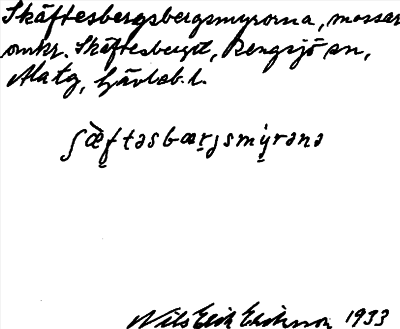 Skäftesbergsbergsmyrorna, mossar
omkr. Skäftesberget, Rengsjö sn,
Alata, Gävleb. l.
ʃæ̀ftəsbærjsmýrənə
Nils Erik Eriksson 1933